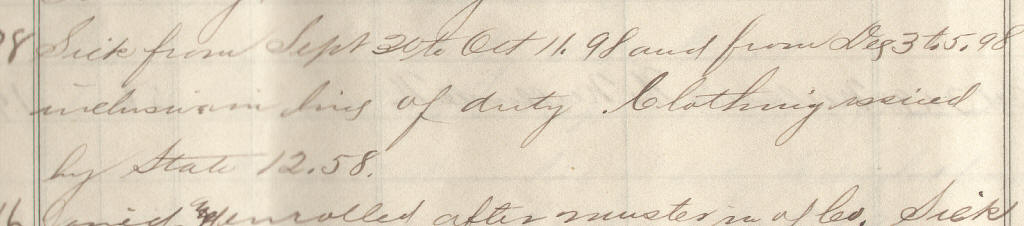 98 Sick from Sept 30 to Oct 11. 98 and from Dec 3 to 5. 98
inclusive in line of duty Clothing issued
by State 12.58.
16 Joined & enrolled after muster in of Co. Sick